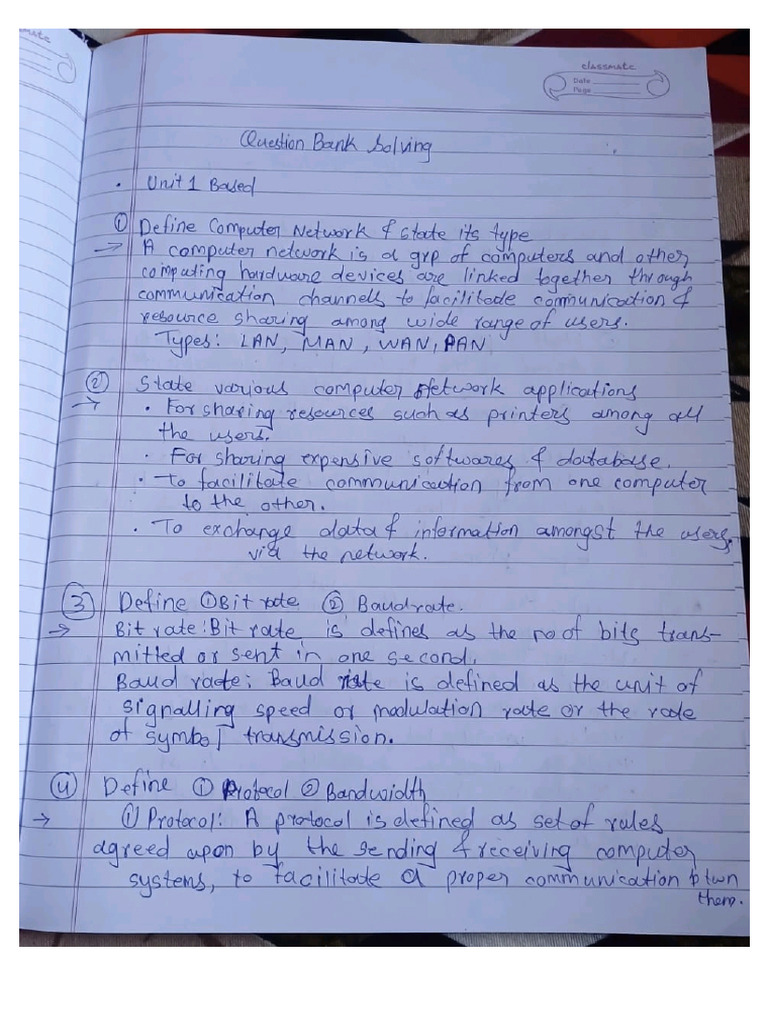 classmate
Date
Page
Question Bank Solving
• Unit 1 Based
① Define Computer Network & State its type
→ A computer network is a grp of computers and other
computing hardware devices are linked together through
communication channels to facilitate communication &
resource sharing among wide range of users.
Types: LAN, MAN, WAN, PAN
② State various computer Network applications
→ • For sharing resources such as printers among all
the users.
• For sharing expensive softwares & database.
• To facilitate communication from one computer
to the other.
• To exchange data & information amongst the users,
via the network.
③ Define ① Bit rate ② Baud rate.
→ Bit rate: Bit rate is defines as the no of bits trans-
mitted or sent in one second.
Baud rate: Baud rate is defined as the unit of
signalling speed or modulation rate or the rate
of symbol transmission.
④ Define ① Protocol ② Bandwidth
→ ① Protocol: A protocol is defined as set of rules
agreed upon by the sending & receiving computer
systems, to facilitate a proper communication btwn
them.